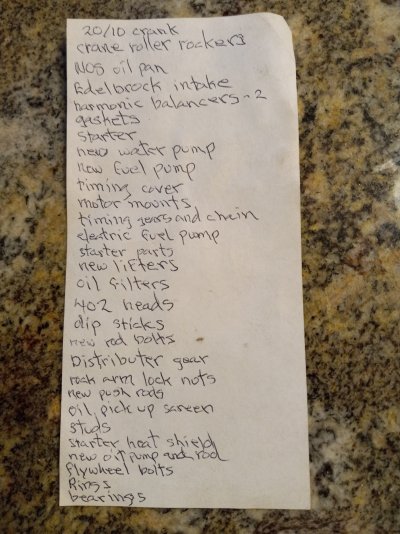 20/10 crank
crane roller rockers
NOS oil pan
Edelbrock intake
harmonic balancers - 2
gaskets
starter
new water pump
new fuel pump
timing cover
motor mounts
timing gears and chain
electric fuel pump
starter parts
new lifters
oil filters
402 heads
dip sticks
new rod bolts
Distributer gear
rock arm lock nots
new push rods
oil pick up screen
studs
starter heat shield
new oil pump and rod
flywheel bolts
Rings
bearings